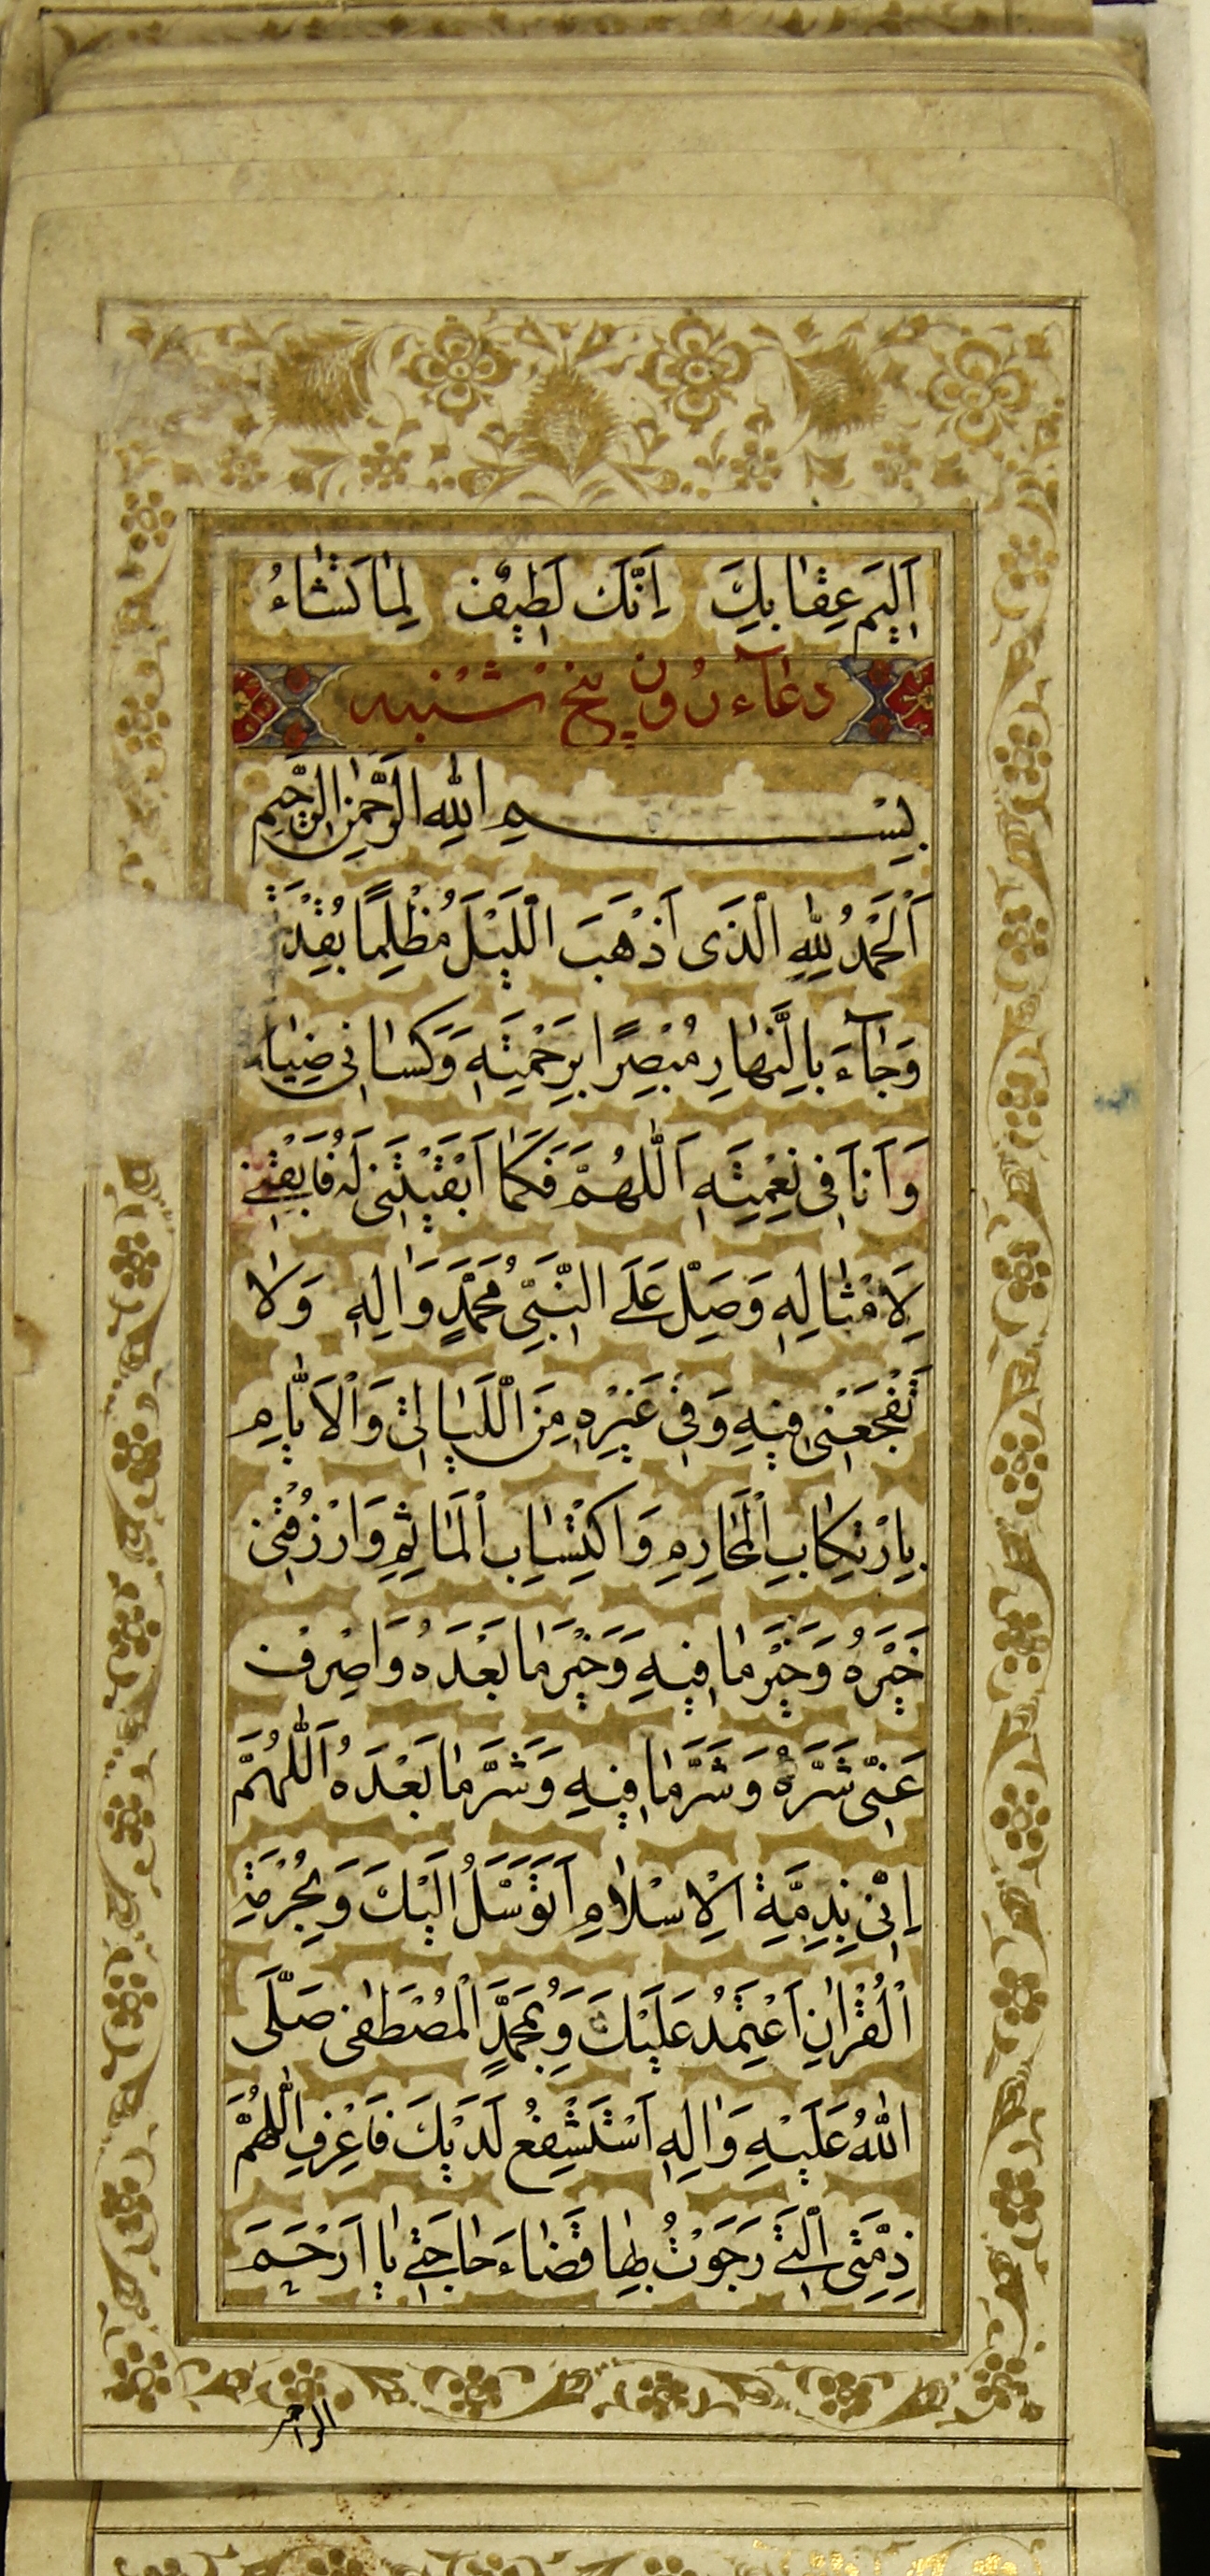 اَلِيمَ عِقٰابِكَ اِنَّكَ لَطِيفٌ لِمٰا تَشٰاءُ
دعآء روز پنج شنبه
بِسْمِ اللّٰهِ الرَّحْمٰنِ الرَّحِيمِ
اَلْحَمْدُ لِلّٰهِ الَّذَى اَذْهَبَ اللَّيْلَ مُظْلِمًا بِقُدْرَتِهِ
وَجٰآءَ بِالنَّهٰارِ مُبْصِرًا بِرَحْمَتِهِ وَكَسٰانِى ضِيٰاءَهُ
وَ اَنَا فِى نِعْمَتِهِ اَللّٰهُمَّ فَكَمٰا اَبْقَيْتَنِى لَهُ فَابْقِنِى
لِاَمْثٰالِهِ وَصَلِّ عَلَى النَّبِىِّ مُحَمَّدٍ وَاٰلِهِ وَلٰا
تَفْجَعْنِى فِيهِ وَفِى غَيْرِهِ مِنَ اللَّيٰالِى وَالْاَيّٰامِ
بِارْتِكٰابِ الْمَحٰارِمِ وَاكْتِسٰابِ الْمَاٰثِمِ وَارْزُقْنِى
خَيْرَهُ وَخَيْرَ مٰا فِيهِ وَخَيْرَ مٰا بَعْدَهُ وَاصْرِفْ
عَنِّى شَرَّهُ وَشَرَّ مٰا فِيهِ وَشَرَّ مٰا بَعْدَهُ اَللّٰهُمَّ
اِنِّى بِذِمَّةِ الْاِسْلٰامِ اَتَوَسَّلُ اِلَيْكَ وَبِحُرْمَةِ
الْقُرْاٰنِ اَعْتَمِدُ عَلَيْكَ وَبِمُحَمَّدٍ الْمُصْطَفٰى صَلَّى
اللّٰهُ عَلَيْهِ وَاٰلِهِ اَسْتَشْفِعُ لَدَيْكَ فَاعْرِفِ اللّٰهُمَّ
ذِمَّتِى الَّتِى رَجَوْتُ بِهٰا قَضٰاءَ حٰاجَتِى يٰا اَرْحَمَ
الراحمين